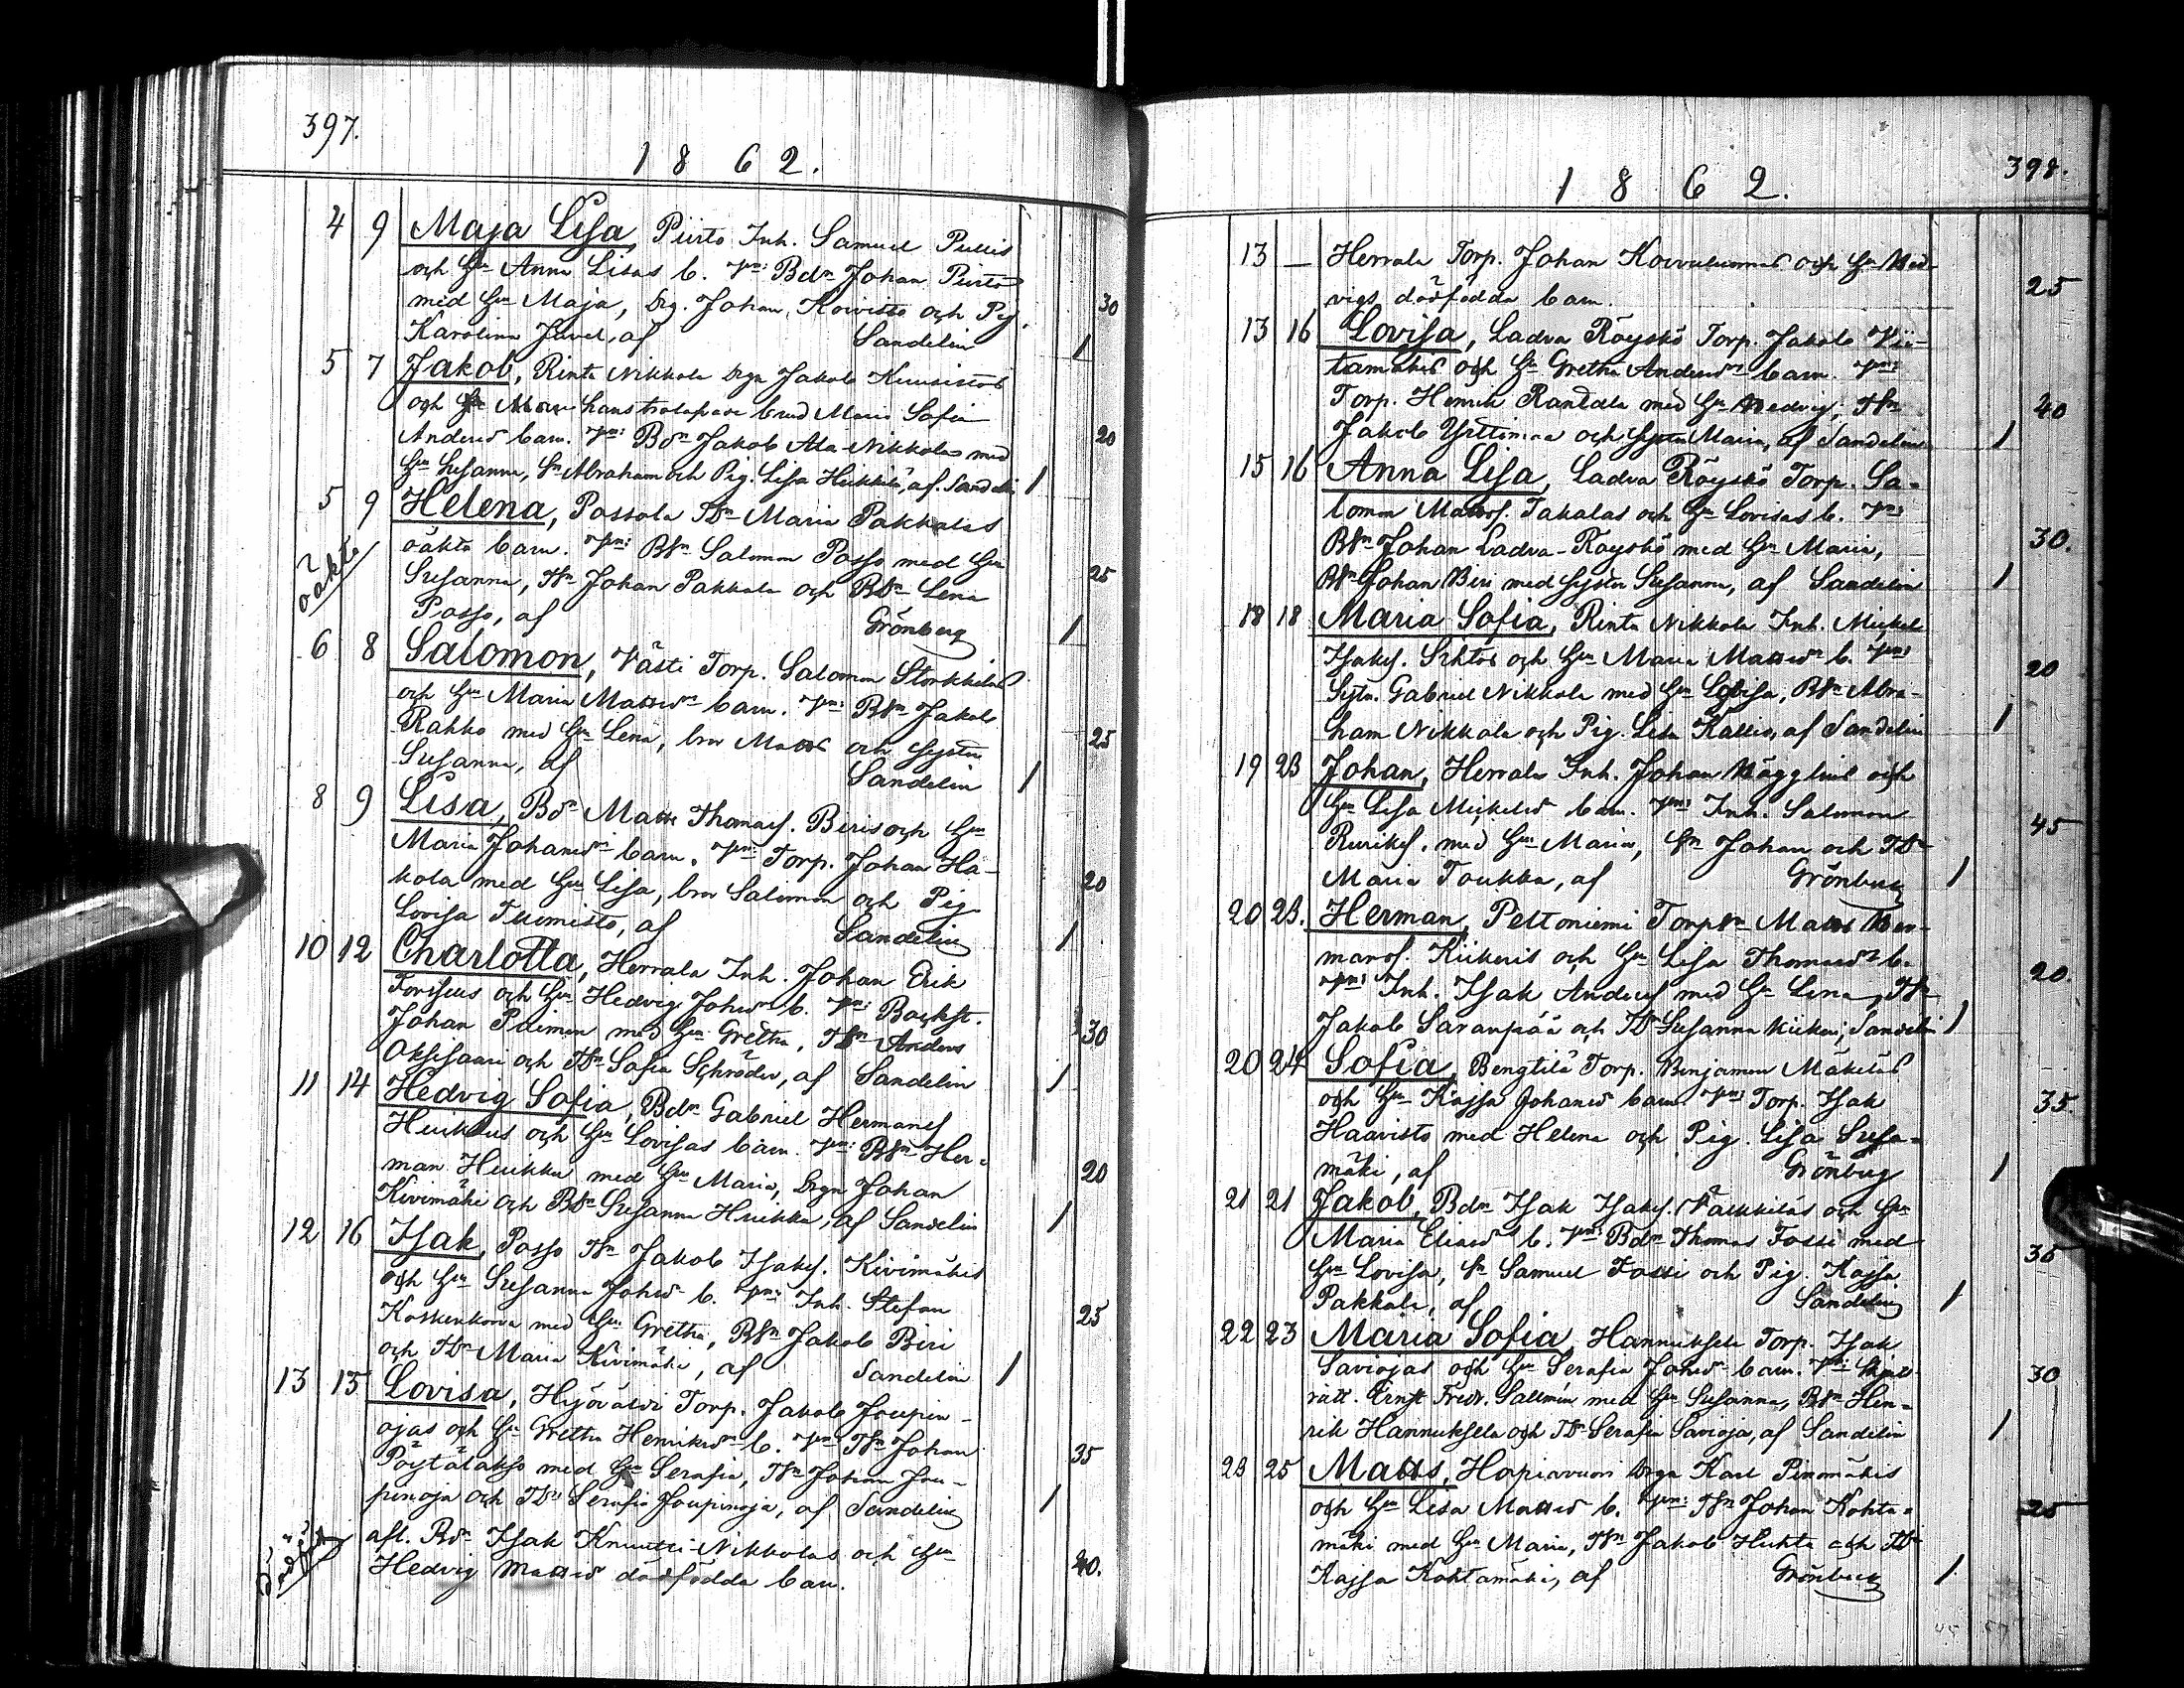 397.
1 8 6 2.
4 9 Maja Lisa, Piirto Inh. Samuel
och Hu Anna Lisas b. Vn: Bdn Johan Piirto
med Hu Maja, Drg. Johan Koivisto och Pig.
Karolina Juvel, af Sandelin 1
30
5 7 Jakob, Rinta Nikkola Drgn Jakob Kuusistos
och brud Maria Sofia
Andersd barn. Vn: Bdn Jakob Ala-Nikkolas med
Hu Susanna, Sn Abraham och Pig. Lisa Heikkilä, af Sandelin 1
20
5 9 Helena, Possola TDr Maria Pakkalas
oäkta barn. Vn: BSn Salomon Posso med Hu
Susanna, TSn Johan Pakkala och BDr Lena
Posso, af Grönberg 1
25
oäkta
6 8 Salomon, Västi Torp. Salomon
och Hu Maria Mattsdr barn. Vn: BSn Jakob
Rahko med Hu Lena, bror Matts och Syster
Susanna, af Sandelin 1
25
8 9 Lisa, Bdn Matts Thomass. Biris och Hu
Maria Johansdr barn. Vn: Torp. Johan Ha-
kola med Hu Lisa, bror Salomon och Pig.
Lovisa Tuomisto, af Sandelin 1
20
10 12 Charlotta, Herrala Inh. Johan Erik
Forssells och Hu Hedvig Johsdr b. Vn: Backst.
Johan med Hu Gretha, TSn Anders
Oksisaari och TDr Sofia Schröder, af Sandelin 1
30
11 14 Hedvig Sofia, Bdn Gabriel Hermans
Huikkus och Hu Lovisas barn. Vn: BSn Her-
man Huikku med Hu Maria, Drgn Johan
Kivimäki och BDr Susanna Huikku, af Sandelin 1
20
12 16 Isak, Posso TSn Jakob Isaks. Kivimäkis
och Hu Susanna Johsdr b. Vn: Inh. Stefan
Koskenkorva med Hu Gretha, BSn Jakob Biri
och TDr Maria Kivimäki, af Sandelin 1
25
13 15 Lovisa, Torp. Jakob Joupin-
ojas och Hu Gretha Henriksdr b. Vn: TSn Johan
med Hu Serafia, TSn Johan Jou-
pinoja och TDr Serafia Joupinoja, af Sandelin 1
35
afl. Bdn Isak Knuutti-Nikkolas och Hu
Hedvig Mattsd dödfödda barn.
40.
dödfödt
398.
1 8 6 2.
13 — Herrala Torp. Johan och Hu Hed-
vigs dödfödda barn.
25
13 16 Lovisa, Ladva Röyskö Torp. Jakob Vii-
tamäkis och Hu Gretha Andersdr barn. Vn:
Torp. Henrik Rantala med Hu Hedvig, TSn
Jakob och Syster Maria, af Sandelin 1
40
15 16 Anna Lisa, Ladva Röyskö Torp. Sa-
lomon Mattss. Takalas och Hu Lovisas b. Vn:
BSn Johan Ladva-Röyskö med Hu Maria,
BSn Johan Biri med Syster Susanna, af Sandelin 1
30.
18 18 Maria Sofia, Rinta Nikkola Inh. Mickel
Isaks. och Hu Maria Mattsdr b. Vn:
Sytn. Gabriel Nikkola med Hu Lovisa, BSn Abra-
ham Nikkola och Pig. Lisa Kallio, af Sandelin 1
20
19 23 Johan, Herrala Inh. Johan Häggblms och
Hu Lisa Mickelsd barn. Vn: Inh. Salomon
med Hu Maria, Sn Johan och TDr
Maria Toukka, af Grönberg 1
45
20 23. Herman, Peltoniemi TorpSn Matts Her-
manss. Kiikeris och Hu Lisa Thomasdr b.
Vn: Inh. Isak Anderss med Hu Lena, TSn
Jakob Saranpää och TDr Susanna Kiikeri, Sandelin 1
20.
20 24 Sofia, Bengtilä Torp. Benjamin Mäkeläs
och Hu Kajsa Johansd barn. Vn: Torp. Isak
Haavisto med Helena och Pig. Lisa Susa-
mäki, af Grönberg 1
35.
21 21 Jakob, Bdn Isak Isaks. och Hu
Maria Eliasdr b. Vn: Bdn Thomas Fossi med
Hu Lovisa, Sn Samuel Fossi och Pig. Kajsa
Pakkala, af Sandelin 1
35
22 23 Maria Sofia, Hannuksela Torp. Isak
Saviojas och Hu Serafia Johsd barn. Vn:
rätt. Ernst Fredr. Sallmén med Hu Susanna, BSn Hen-
rik Hannuksela och TDr Serafia Savioja, af Sandelin 1
30
23 25 Matts, Hopiavuori Drgn Karl Pinomäkis
och Hu Lisa Mattsd b. Vn: TSn Johan Kohta-
mäki med Hu Maria, TSn Jakob Huhta och TDr
Kajsa Kohtamäki, af Grönberg 1
25